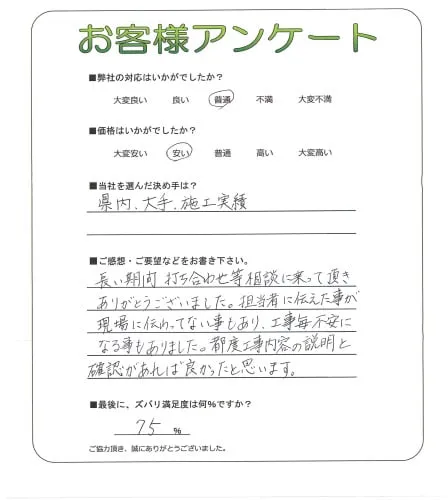 お客様アンケート
■弊社の対応はいかがでしたか?
大変良い 良い 普通 不満 大変不満
■価格はいかがでしたか?
大変安い 安い 普通 高い 大変高い
■当社を選んだ決め手は?
県内、大手、施工実績
■ご感想・ご要望などをお書き下さい。
長い期間 打ち合わせ等相談に来って頂き
ありがとうございました。担当者に伝えた事が
現場に伝わってない事もあり、工事毎不安に
なる事もありました。都度工事内容の説明と
確認があれば良かったと思います。
■最後に、ズバリ満足度は何%ですか?
75 %
ご協力頂き、誠にありがとうございました。